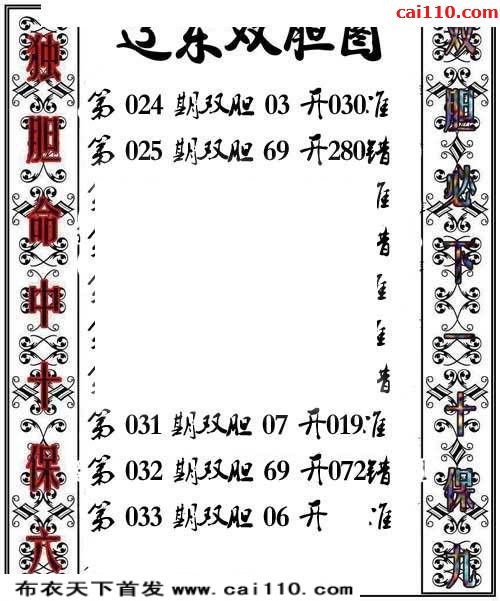 cai110.com
辽东双胆图
独胆命中十保六
第 024 期双胆 03 开030准
第 025 期双胆 69 开280错
第 031 期双胆 07 开019准
第 032 期双胆 69 开072错
第 033 期双胆 06 开 准
双胆必下一十保九
布衣天下首发 www.cai110.com